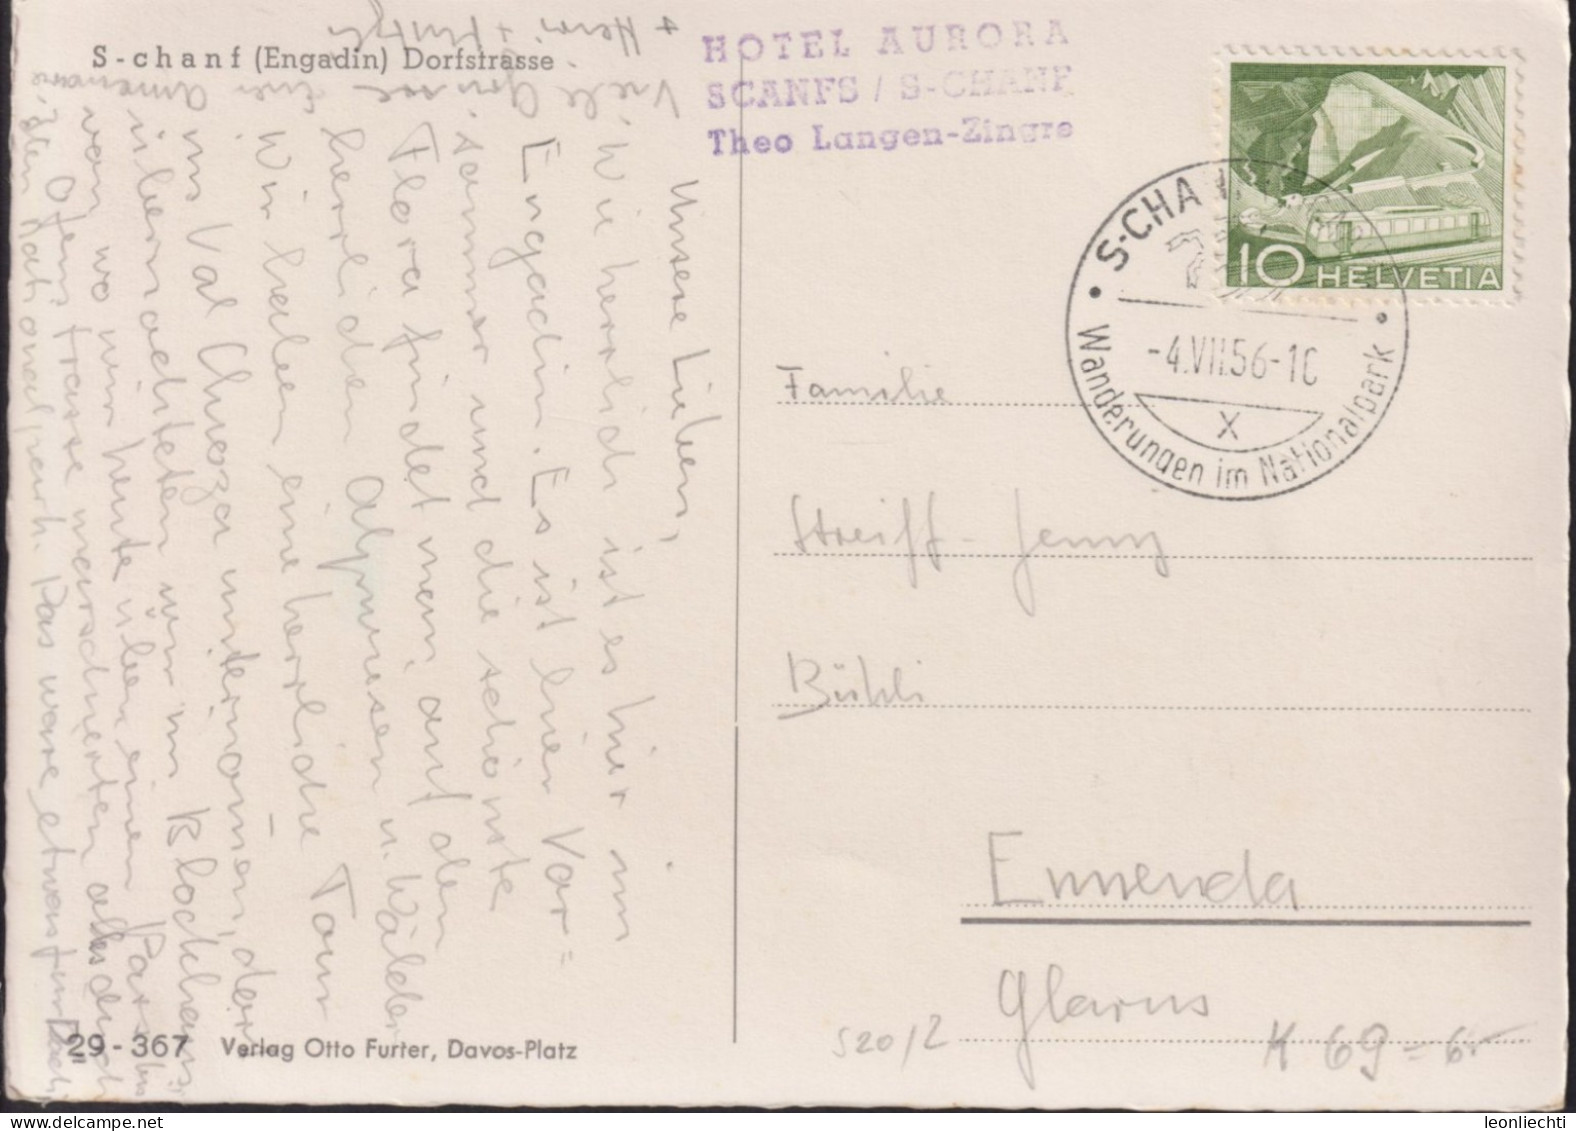 S-chanf (Engadin) Dorfstrasse
HOTEL AURORA
SCANFS / S-CHANF
Theo Langen-Zingre
10 HELVETIA
S-CHANF
-4.VII.56-10
X
Wanderungen im Nationalpark
Unsere Lieben,
Wie herrlich ist es hier im
Engadin. Es ist hier Vor=
sommer und die schönste
Flora findet man auf den
herrlichen Alpwiesen u. Wälder
Wir haben eine herrliche Tour
ins Val Cluoza unternomen, dort
übernachteten wir im Blockhaus
von wo wir heute über einen Pass bis
Ofenstrasse marschierten alles durch
den Nationalpark. Das wäre etwas für
Viele Grüsse
Familie
Streiff-Jenny
Bühli
Ennenda
Glarus
29-367 Verlag Otto Furter, Davos-Platz
S20/2
K 69=